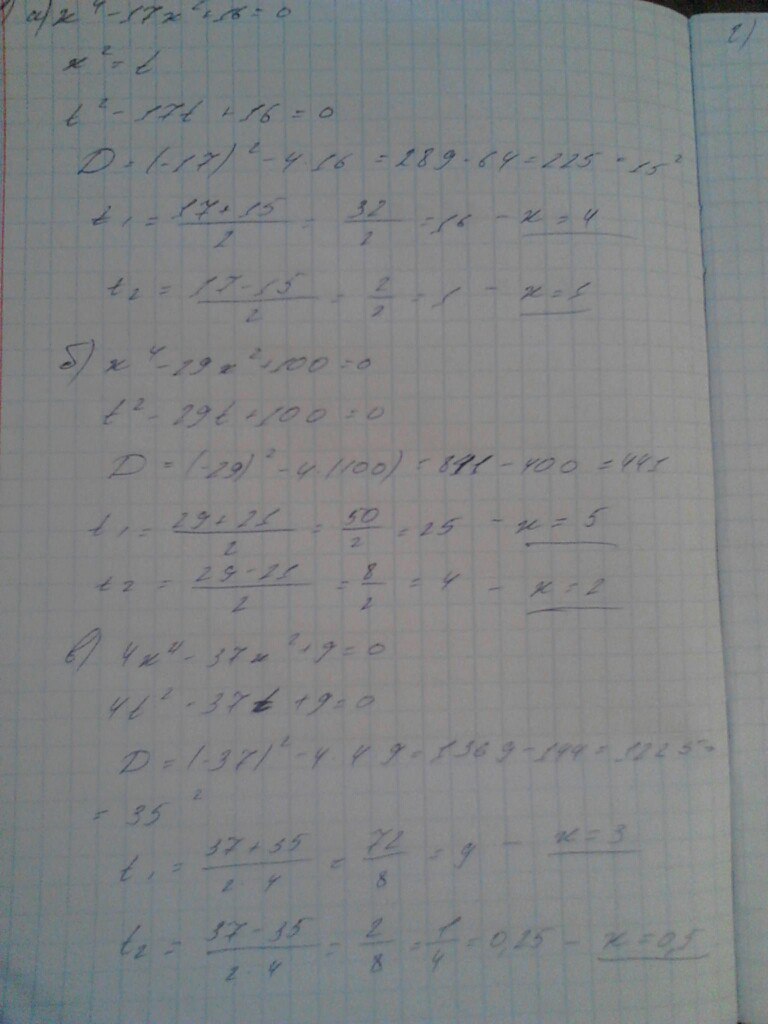 а) x⁴ - 17x² + 16 = 0
x² = t
t² - 17t + 16 = 0
D = (-17)² - 4·16 = 289 - 64 = 225 = 15²
t₁ = (17+15)/2 = 32/2 = 16 - x = 4
t₂ = (17-15)/2 = 2/2 = 1 - x = 1
б) x⁴ - 29x² + 100 = 0
t² - 29t + 100 = 0
D = (-29)² - 4·(100) = 841 - 400 = 441
t₁ = (29+21)/2 = 50/2 = 25 - x = 5
t₂ = (29-21)/2 = 8/2 = 4 - x = 2
в) 4x⁴ - 37x² + 9 = 0
4t² - 37t + 9 = 0
D = (-37)² - 4·4·9 = 1369 - 144 = 1225 =
= 35²
t₁ = (37+35)/(2·4) = 72/8 = 9 - x = 3
t₂ = (37-35)/(2·4) = 2/8 = 1/4 = 0,25 - x = 0,5
г)